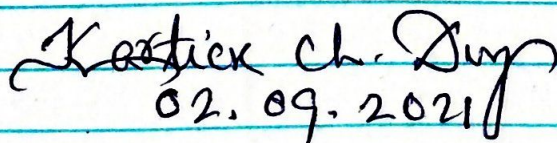 Kartick Ch. Dey
02.09.2021